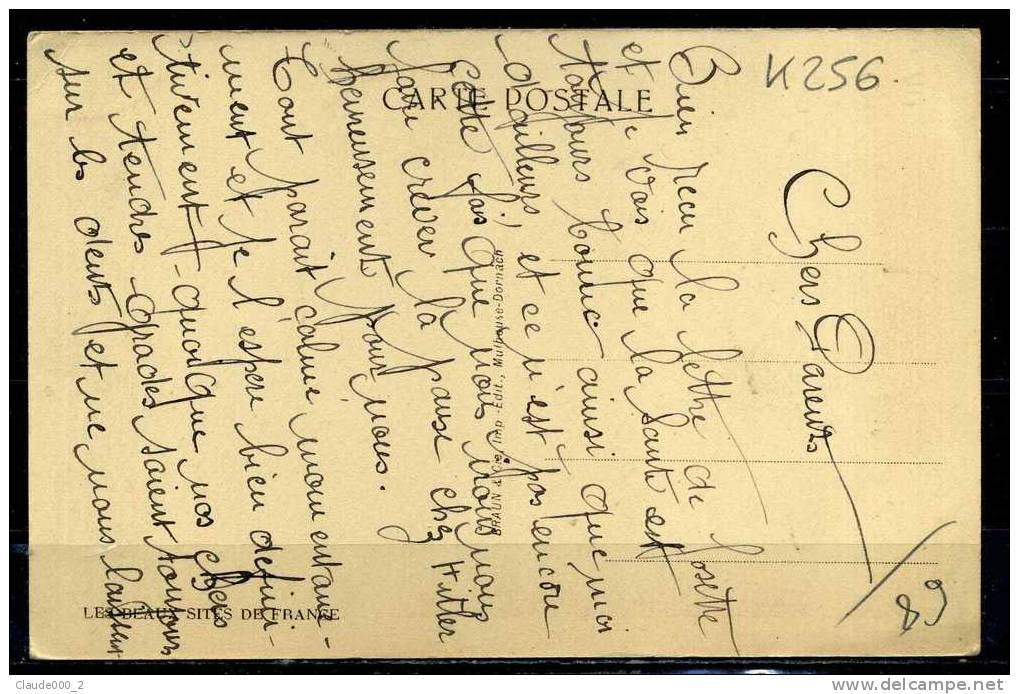 CARTE POSTALE
K256.
Chers Parents
Bien reçu la lettre de Josette
et je vois que la santé est
toujours bonne ainsi que moi
d'ailleurs, et ce n'est pas encore
cette fois que nous irons nous
faire crever la panse chez Hitler
heureusement pour nous.
Tout parait calme momentané-
ment et je l'espere bien défini-
tivement - quoique nos chers
et tendres gradés soient toujours
sur les dents et ne nous laissent
BRAUN & Cie, Imp.-Edit., Mulhouse-Dornach
LES BEAUX SITES DE FRANCE
Claude000_2